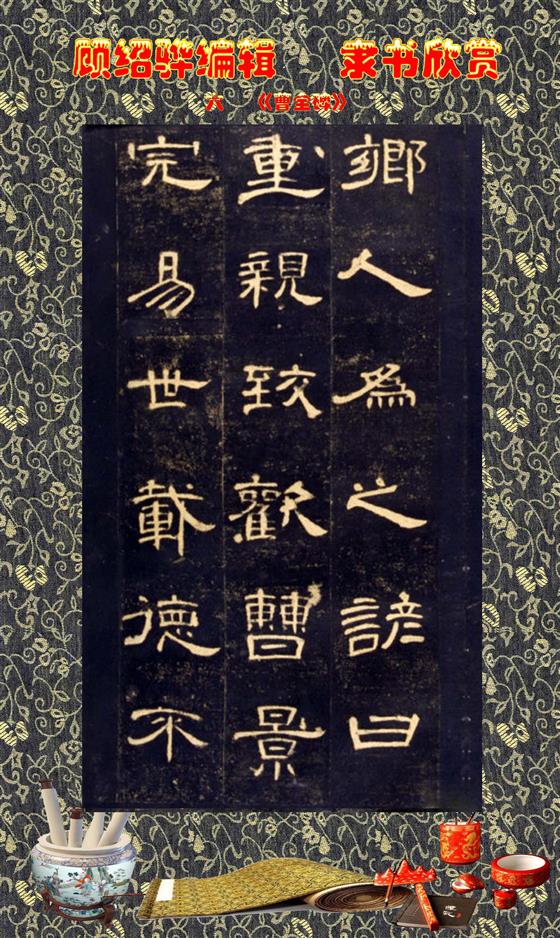 顾绍骅编辑 隶书欣赏
六 《曹全碑》
鄉人為之諺曰
重親致歡曹景
完易世載德不